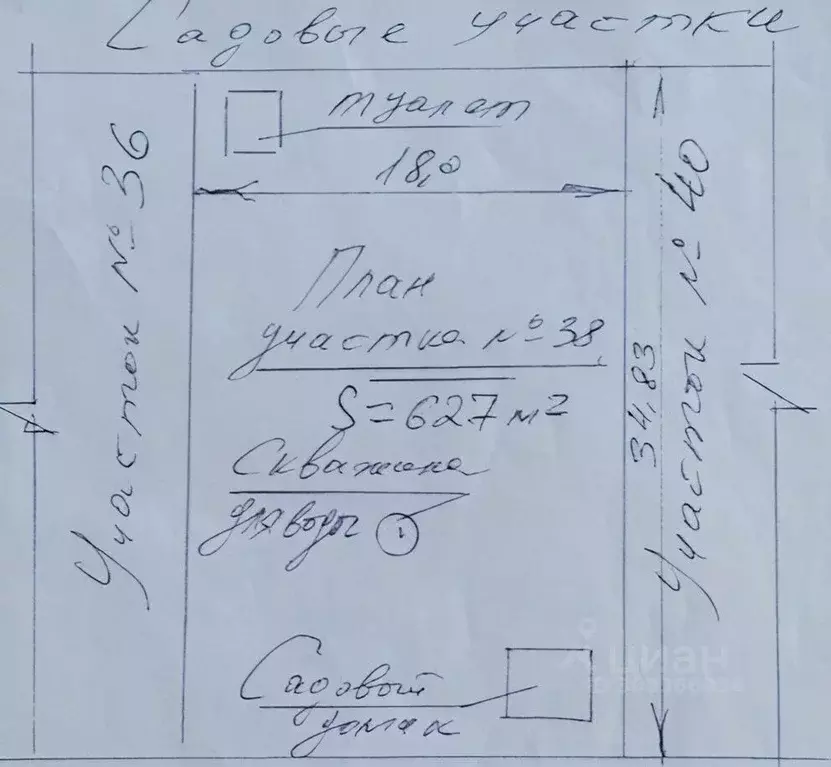 Садовые участки
туалет
18,0
Участок № 36
План
участка № 38
S=627 м²
34,83
Участок № 40
Скважина
для воды
Садовый
домик
циан